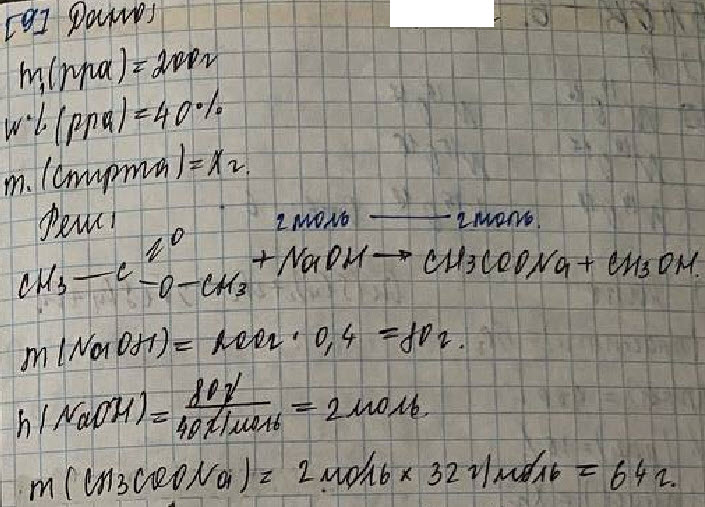 [9] Дано:
m₁(рра) = 200г
w.%(рра) = 40%
m.(спирта) = Xг.
Реш:
2моль — 2моль.
O
CH3 — C – O – CH3 + NaOH → CH3COONa + CH3OH.
m(NaOH) = 200г · 0,4 = 80г.
n(NaOH) = 80г / 40г/моль = 2моль.
m(CH3COONa) = 2моль × 32г/моль = 64г.